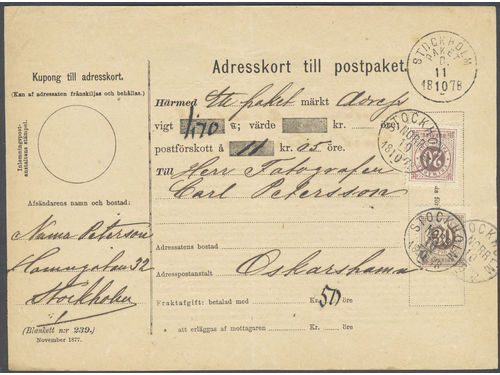 Kupong till adresskort.
(Kan af adressaten frånskiljas och behållas.)
Inlemningspost-
anstaltens stämpel.
Afsändarens namn och bostad:
Nama Peterson
32
Stockholm
(Blankett n:r 239.)
November 1877.
Adresskort till postpaket.
STOCKHOLM
PAKET
C.
11
18 10 78
Härmed ett paket märkt Adress
vigt 170 värde kr. öre
postförskott å 11 kr. 25 öre.
Till Herr Fotografen
Carl Petersson
STOCKHOLM
NORR
18 10
20
Adressatens bostad
Adresspostanstalt Oskarshamn
Fraktafgift: betalad med Kr. 50 öre
" att erläggas af mottagaren Kr. öre
STOCKHOLM
NORR
30
STOCKHOLM
NORR